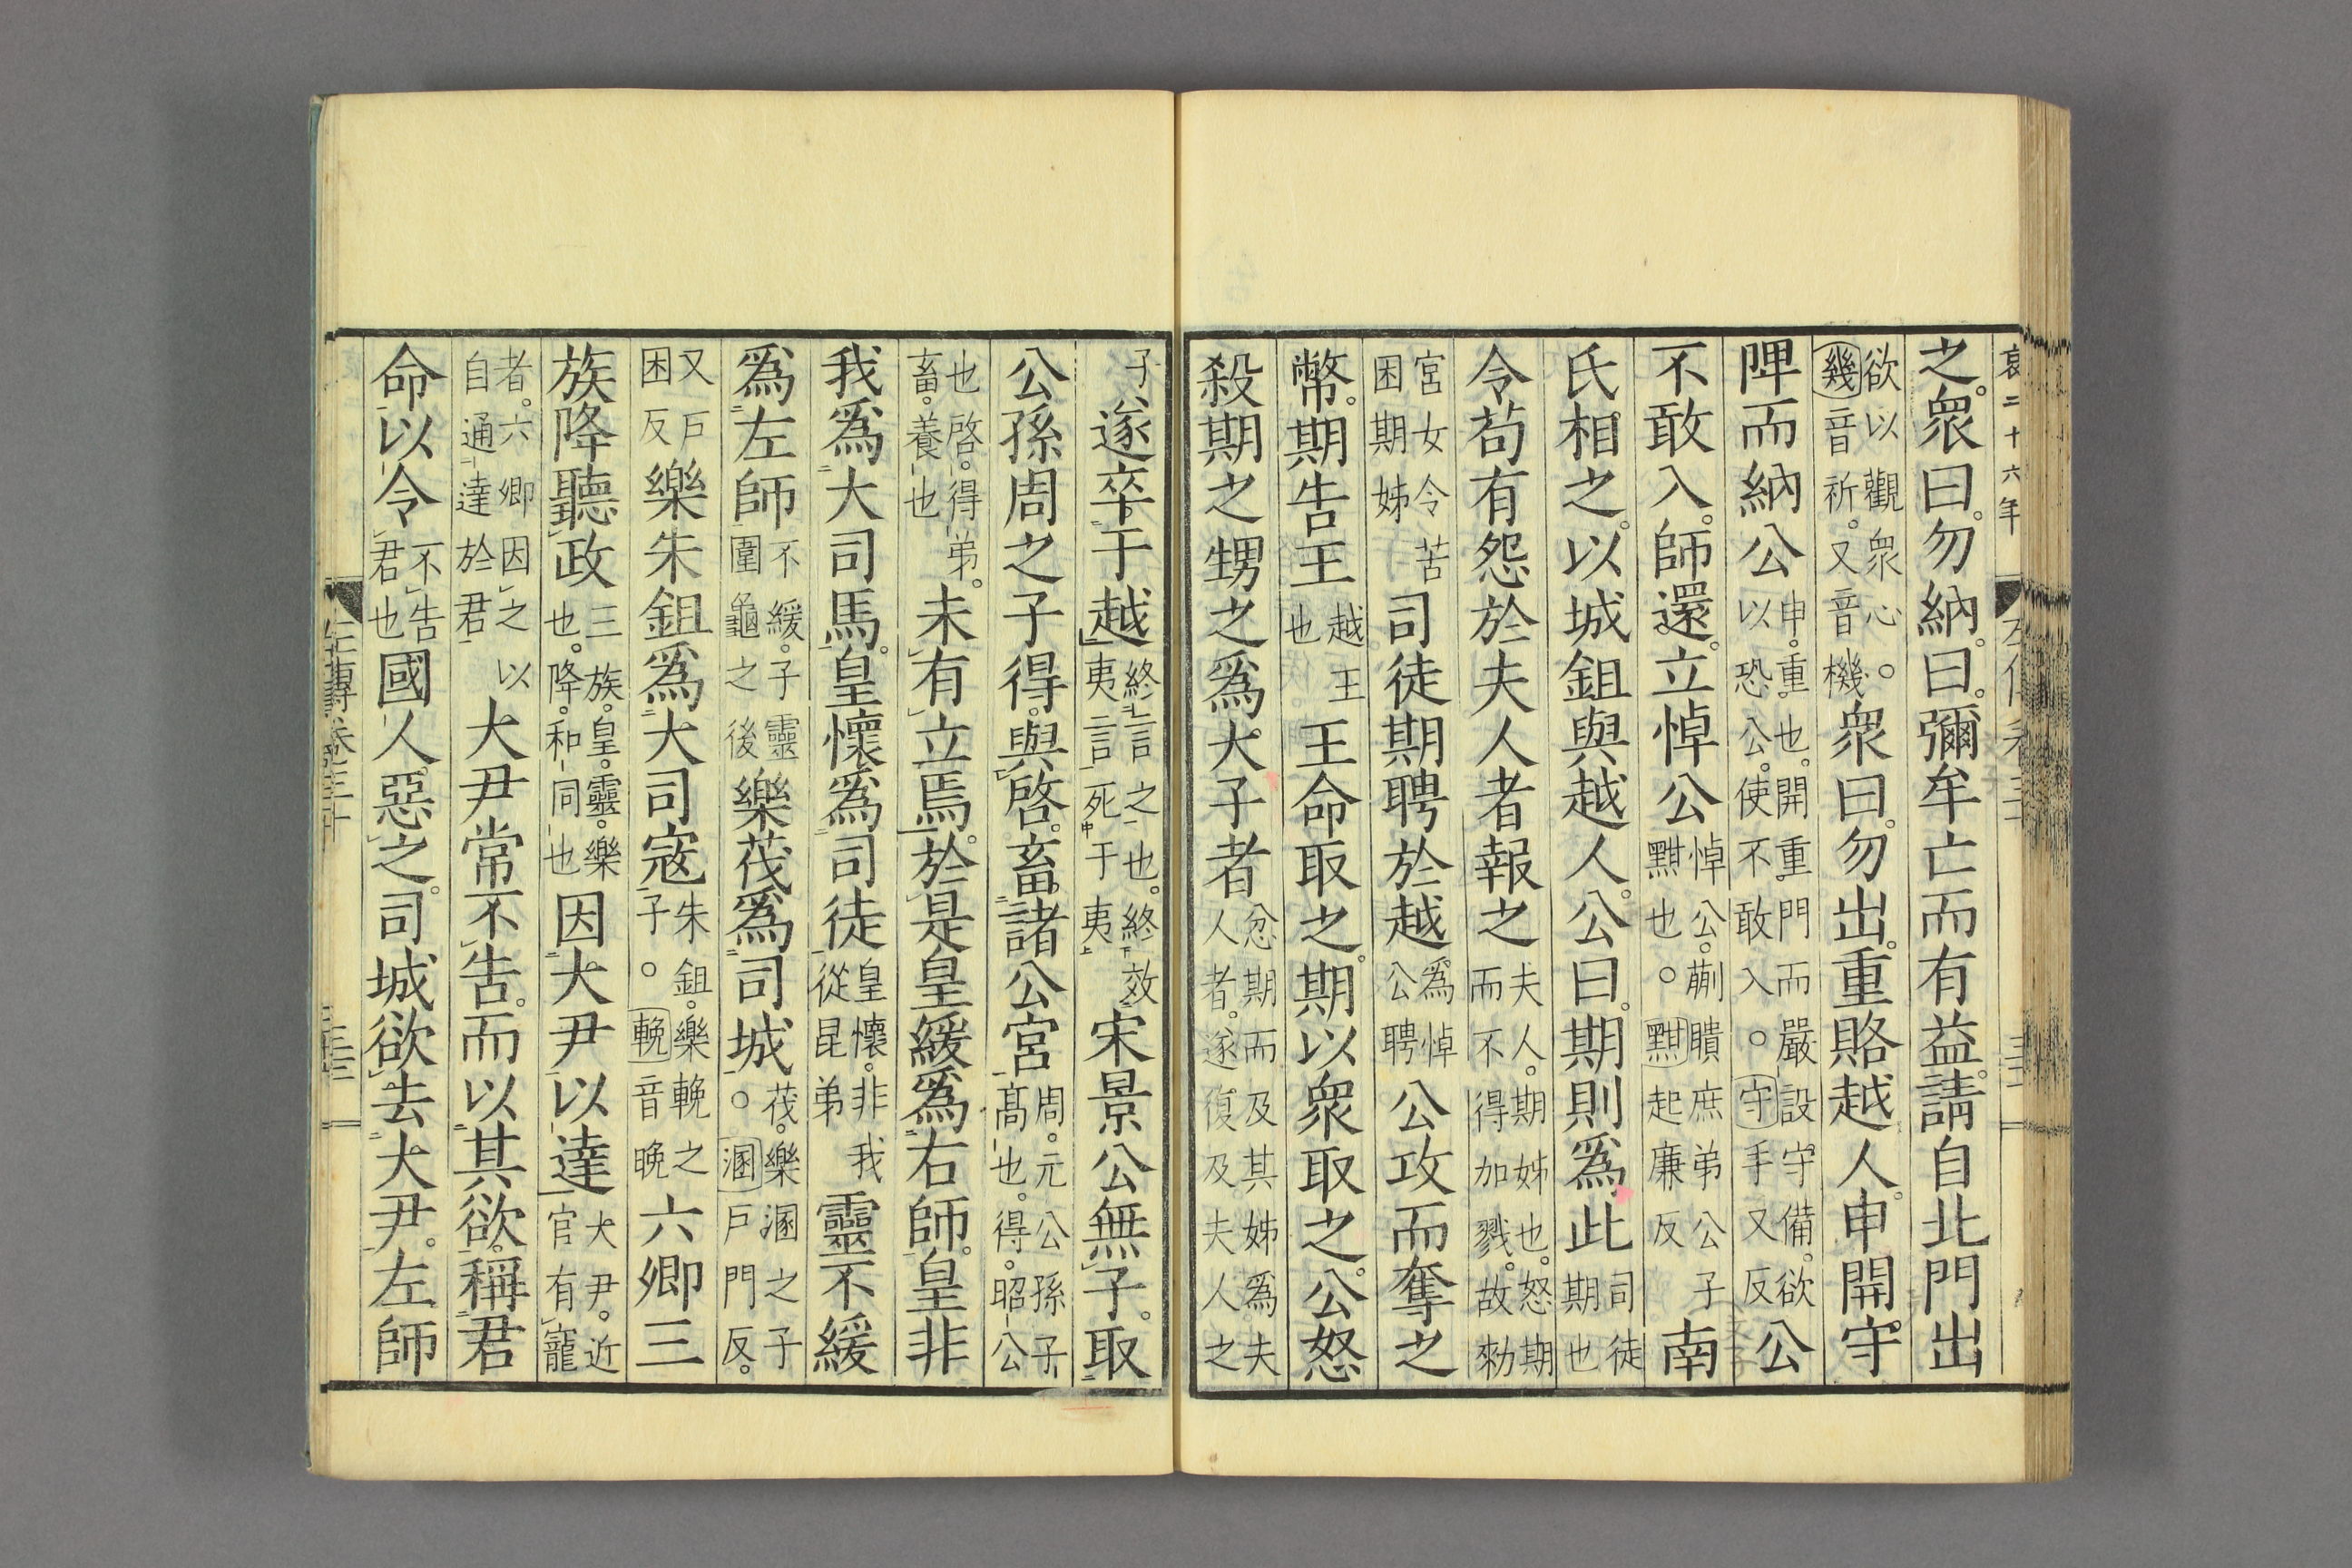 哀二十六年
之。衆曰。勿納。曰。彌牟亡而有益。請自北門出
欲以觀衆心。
幾音祈。又音機
衆曰。勿出。重賂越人。申開守
陴而納公
申。重也。開重門而嚴設守備。欲
以恐公。使不敢入。○守手又反
公
不敢入。師還。立悼公
悼公。蒯聵庶弟公子
黚也。○黚起廉反
南
氏相之。以城鉏與越人。公曰。期則爲此
司徒
期也
令苟有怨於夫人者報之
夫人。期姊也。怒期
而不得加戮。故勑
宮女令苦
困期姊
司徒期聘於越
爲悼
公聘
公攻而奪之
幣。期告王
越王
也
王命取之。期以衆取之。公怒
殺期之甥之爲大子者
忿期而及其姊爲夫
人者。遂復及夫人之
子
遂卒于越
終言之也。終效
夷言死于夷
宋景公無子。取
公孫周之子得。與啓。畜諸公宮
周。元公孫子
高也。得。昭公
也啓。得弟。
畜。養也
未有立焉。於是皇緩爲右師。皇非
我爲大司馬。皇懷爲司徒
皇懷。非我
從昆弟
靈不緩
爲左師
不緩。子靈
圍龜之後
樂茷爲司城
茷。樂溷之子
○溷戶門反。
又戶
困反
樂朱鉏爲大司寇
朱鉏。樂輓之
子。○輓音晚
六卿三
族降聽政
三族。皇。靈。樂
也。降。和同也
因大尹以達
大尹。近
官有寵
者。六卿因之以
自通達於君
大尹常不告。而以其欲。稱君
命以令
不告
君也
國人惡之。司城欲去大尹。左師
左傳卷三十